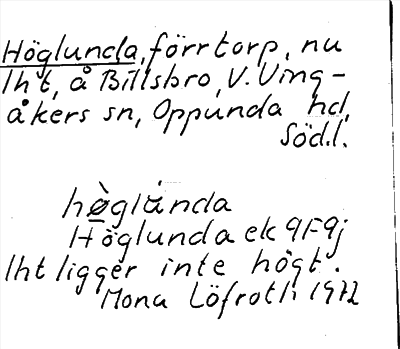 Höglunda, förr torp, nu
lht, å Billsbro, V. Ving-
åkers sn, Oppunda hd,
Södl.
hø̀glúnda
Höglunda ek 9F9j
lht ligger inte högt.
Mona Löfroth 1972